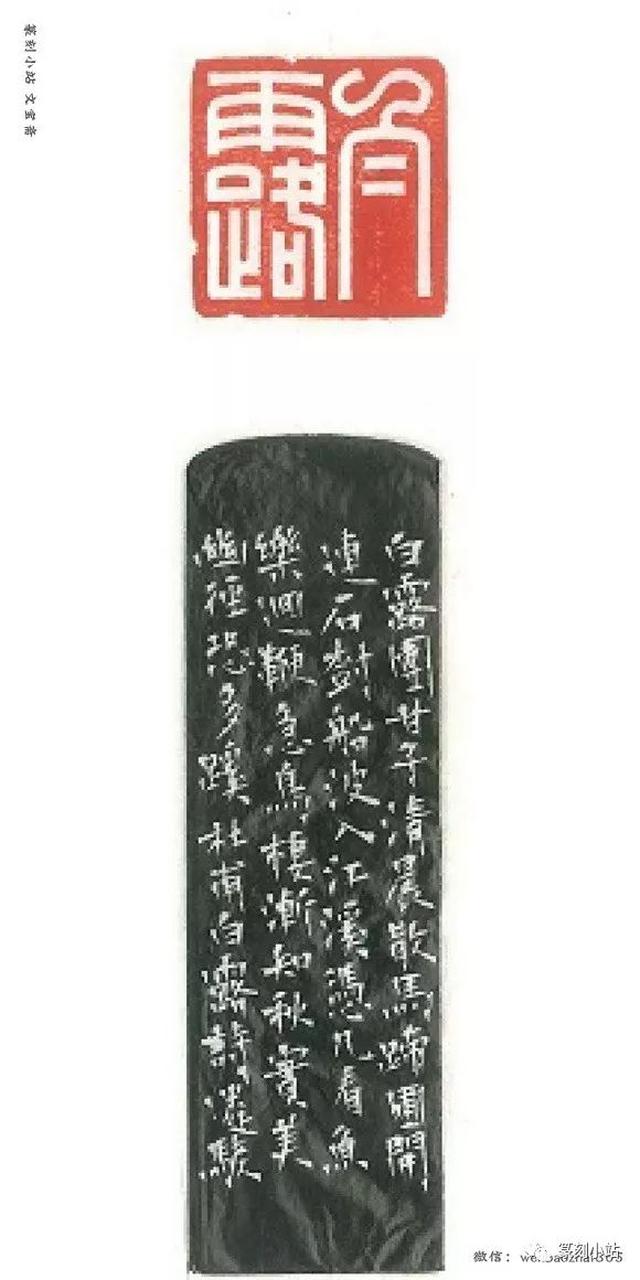 篆刻小站 文宝斋
白露
白露團甘子清晨散馬蹄圃開
連石樹船渡入江溪憑几看魚
樂迴鞭急鳥棲漸知秋實美
幽徑恐多蹊 杜甫白露詩
微信：
篆刻小站